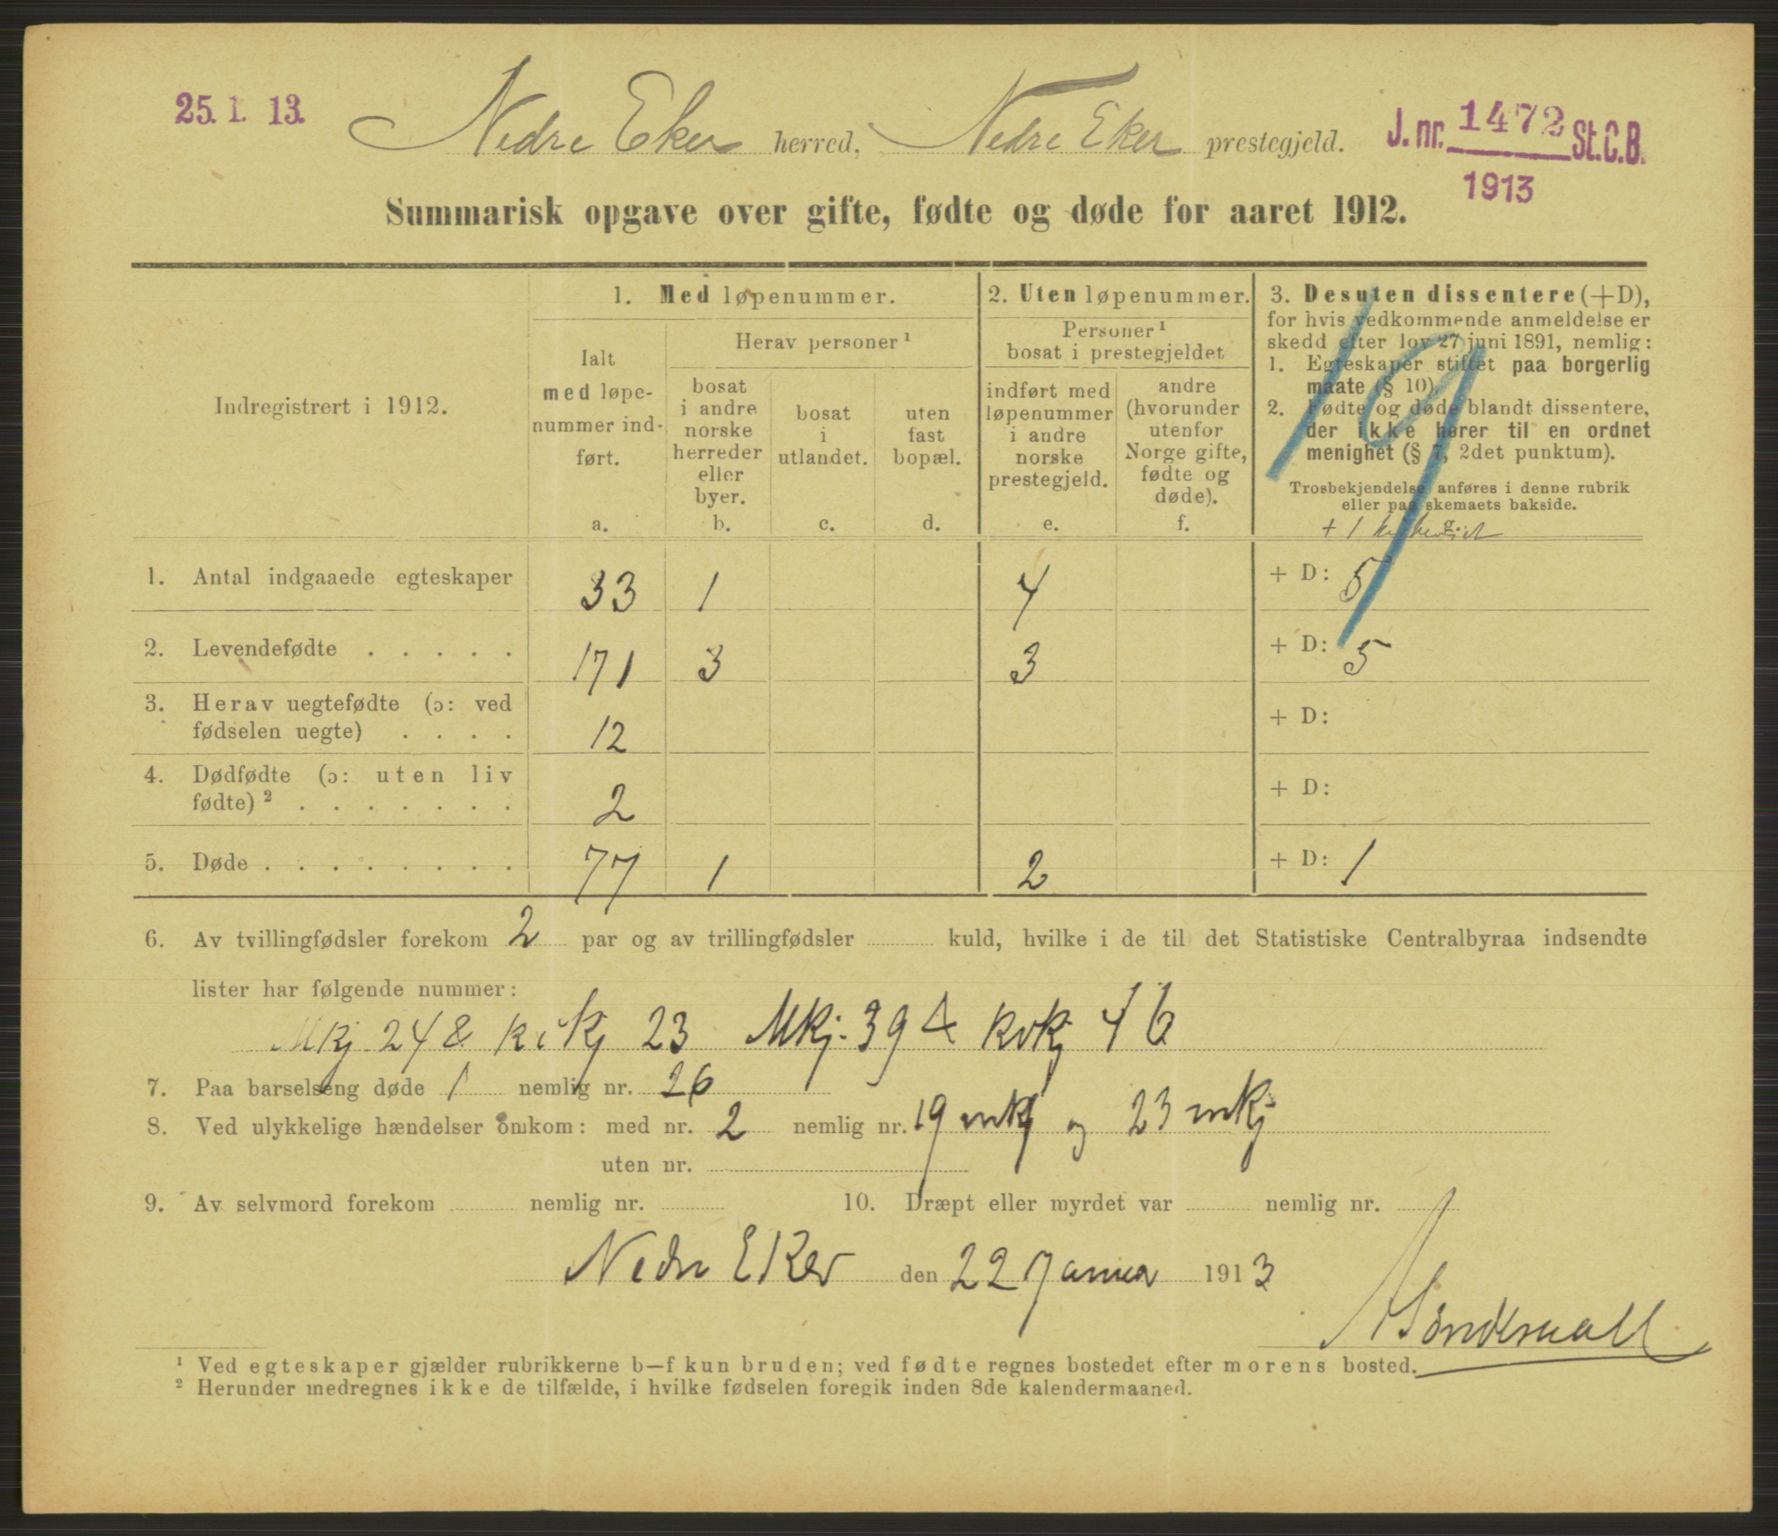 25. 1. 13.
Nedre Eker herred, Nedre Eker prestegjeld.
J. nr. 1472 St. C. B.
1913
Summarisk opgave over gifte, fødte og døde for aaret 1912.
Indregistrert i 1912.
1. Med løpenummer.
Ialt
med løpe-
nummer ind-
ført.
a.
Herav personer ¹
bosat
i andre
norske
herreder
eller
byer.
b.
bosat
i
utlandet.
c.
uten
fast
bopæl.
d.
2. Uten løpenummer.
Personer ¹
bosat i prestegjeldet
indført med
løpenummer
i andre
norske
prestegjeld.
e.
andre
(hvorunder
utenfor
Norge gifte,
fødte og
døde).
f.
3. Desuten dissentere (+D),
for hvis vedkommende anmeldelse er
skedd efter lov 27 juni 1891, nemlig:
1. Egteskaper stiftet paa borgerlig
maate (§ 10).
2. Fødte og døde blandt dissentere,
der ikke hører til en ordnet
menighet (§ 7, 2det punktum).
Trosbekjendelse anføres i denne rubrik
eller paa skemaets bakside.
g.
+ 1
19
1. Antal indgaaede egteskaper 33 1 4 + D: 5
2. Levendefødte . . . . . 171 3 3 + D: 5
3. Herav uegtefødte (ɔ: ved
fødselen uegte) . . . . 12 + D:
4. Dødfødte (ɔ: uten liv
fødte) ² . . . . . . . 2 + D:
5. Døde . . . . . . . . 77 1 2 + D: 1
6. Av tvillingfødsler forekom 2 par og av trillingfødsler kuld, hvilke i de til det Statistiske Centralbyraa indsendte
lister har følgende nummer:
Mkj 24 & kvkj 23 Mkj. 39 & kvkj 46
7. Paa barselseng døde 1 nemlig nr. 26
8. Ved ulykkelige hændelser omkom: med nr. 2 nemlig nr. 19 mkj og 23 mkj
uten nr.
9. Av selvmord forekom nemlig nr. 10. Dræpt eller myrdet var nemlig nr.
Nedre Eker den 22 Januar 1913
¹ Ved egteskaper gjælder rubrikkerne b—f kun bruden; ved fødte regnes bostedet efter morens bosted.
² Herunder medregnes ikke de tilfælde, i hvilke fødselen foregik inden 8de kalendermaaned.